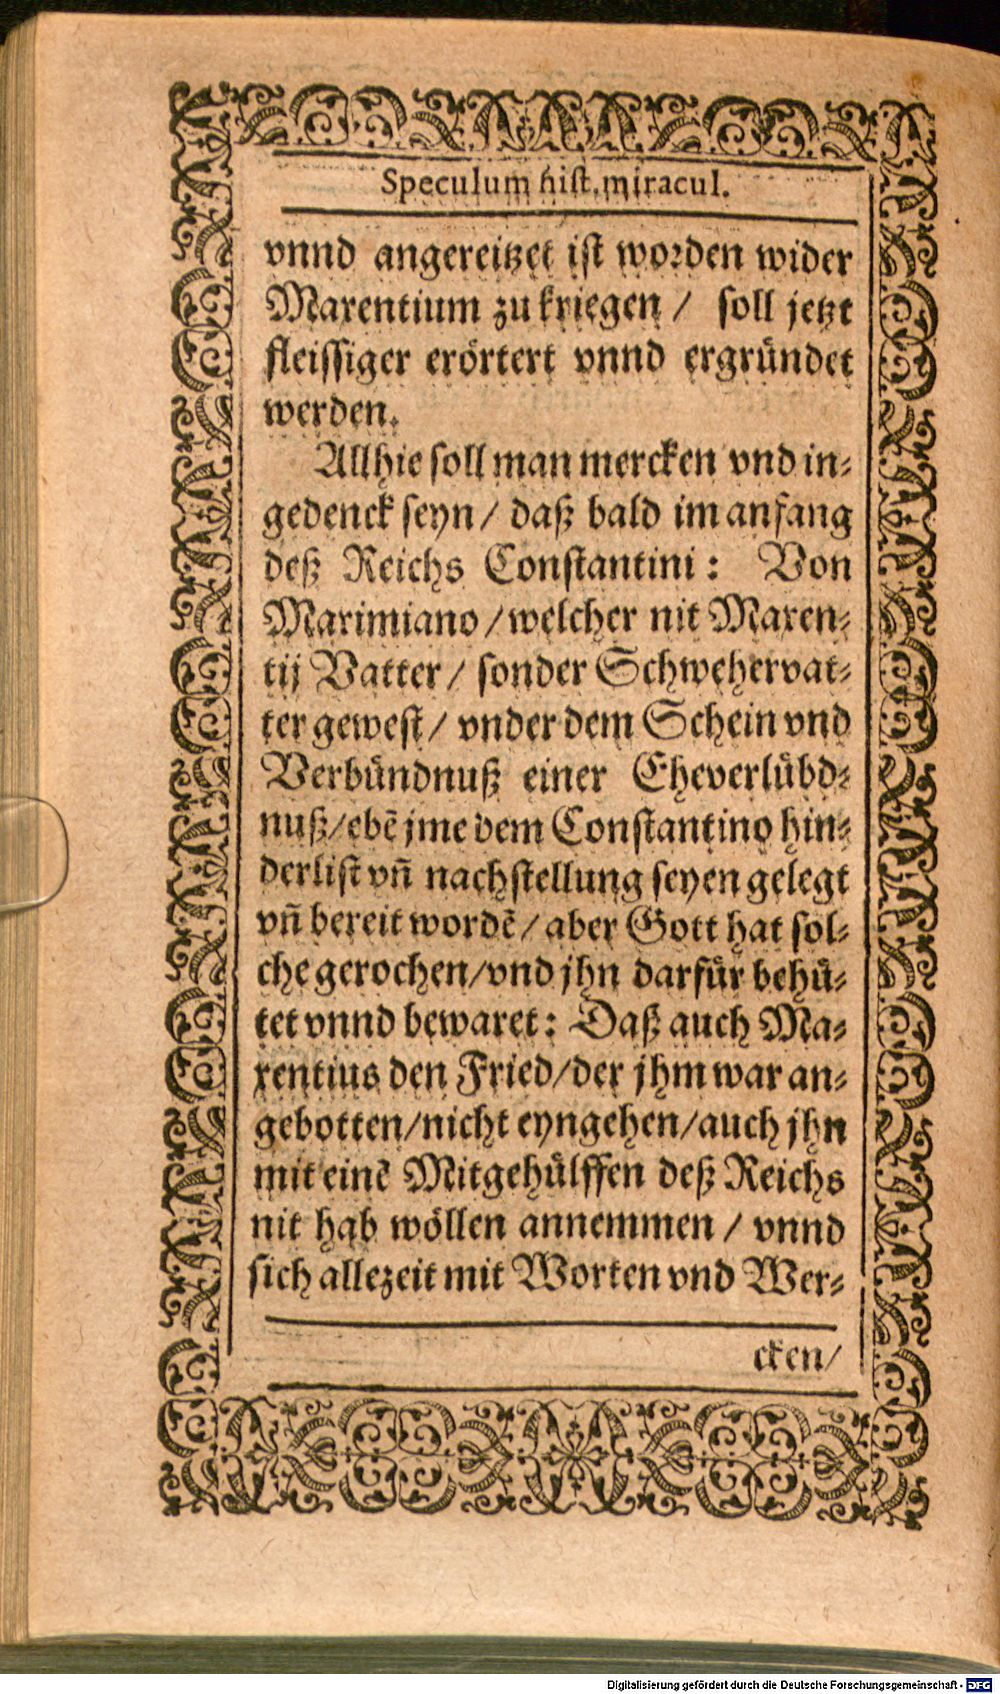 Speculum hist. miracul.
vnnd angereitzet ist worden wider
Maxentium zu kriegen / soll jetzt
fleissiger erörtert vnnd ergründet
werden.
Allhie soll man mercken vnd in-
gedenck seyn / daß bald im anfang
deß Reichs Constantini: Von
Maximiano / welcher nit Maxen-
tij Vatter / sonder Schwehervat-
ter gewest / vnder dem Schein vnd
Verbündnuß einer Eheverlübd-
nuß / ebẽ jme dem Constantino hin-
derlist vñ nachstellung seyen gelegt
vñ bereit wordẽ / aber Gott hat sol-
che gerochen / vnd jhn darfür behü-
tet vnnd bewaret: Daß auch Ma-
xentius den Fried / der jhm war an-
gebotten / nicht eyngehen / auch jhn
mit einẽ Mitgehülffen deß Reichs
nit hab wöllen annemmen / vnnd
sich allezeit mit Worten vnd Wer-
cken /
Digitalisierung gefördert durch die Deutsche Forschungsgemeinschaft - DFG